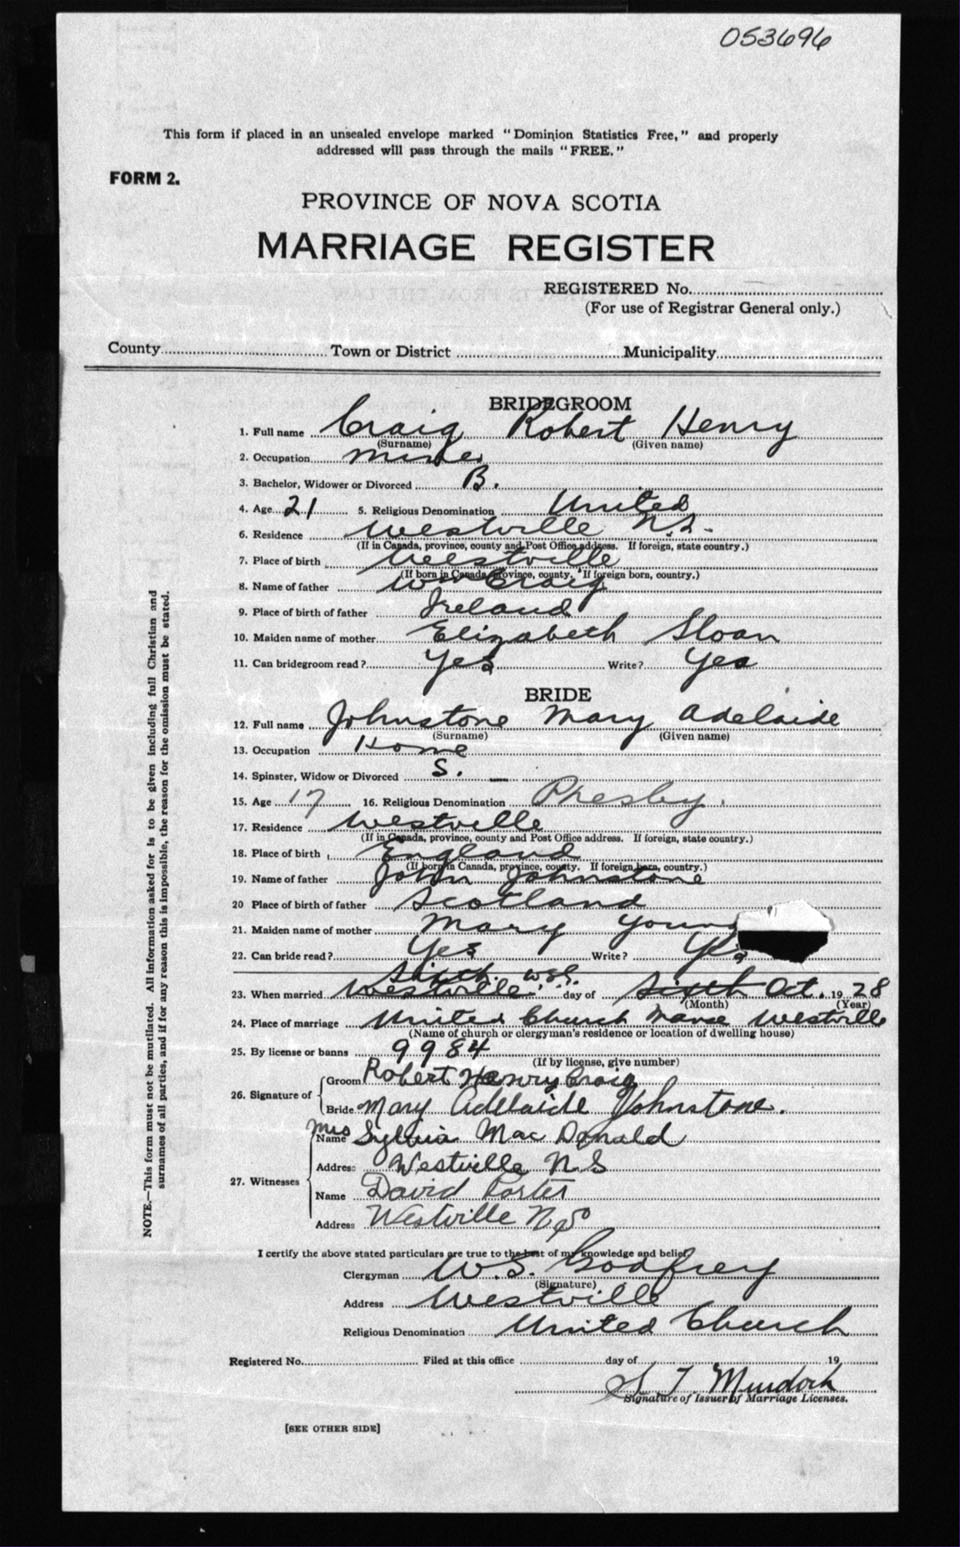 053696
This form if placed in an unsealed envelope marked "Dominion Statistics Free," and properly
addressed will pass through the mails "FREE."
FORM 2.
PROVINCE OF NOVA SCOTIA
MARRIAGE REGISTER
REGISTERED No.
(For use of Registrar General only.)
County Town or District Municipality
BRIDEGROOM
1. Full name Craig Robert Henry
(Surname) (Given name)
2. Occupation
3. Bachelor, Widower or Divorced B.
4. Age 21 5. Religious Denomination United
6. Residence Westville N.S.
(If in Canada, province, county and Post Office address. If foreign, state country.)
7. Place of birth Westville
(If born in Canada, province, county. If foreign born, country.)
8. Name of father Wm Craig
9. Place of birth of father Ireland
10. Maiden name of mother Elizabeth Sloan
11. Can bridegroom read? Yes Write? Yes
BRIDE
12. Full name Johnstone Mary Adelaide
(Surname) (Given name)
13. Occupation Home
14. Spinster, Widow or Divorced S. —
15. Age 17 16. Religious Denomination Presby.
17. Residence Westville
(If in Canada, province, county and Post Office address. If foreign, state country.)
18. Place of birth England
(If born in Canada, province, county. If foreign born, country.)
19. Name of father John Johnstone
20 Place of birth of father Scotland
21. Maiden name of mother Mary
22. Can bride read? Yes Write? Yes
Sixth W.S.G.
23. When married Westville day of Sixth Oct. 19 28
(Month) (Year)
24. Place of marriage United Church Manse Westville
(Name of church or clergyman's residence or location of dwelling house)
25. By license or banns 9984
(If by license, give number)
26. Signature of
Groom Robert Henry Craig
Bride Mary Adelaide Johnstone.
27. Witnesses
Mrs
Name Sylvia MacDonald
Address Westville N.S
Name David Porter
Address Westville N.S
I certify the above stated particulars are true to the best of my knowledge and belief.
Clergyman W.S. Godfrey
(Signature)
Address Westville
Religious Denomination United Church
Registered No. Filed at this office day of 19
S T Murdoch
Signature of Issuer of Marriage Licenses.
[SEE OTHER SIDE]
NOTE.—This form must not be mutilated. All information asked for is to be given including full Christian and
surnames of all parties, and if for any reason this is impossible, the reason for the omission must be stated.